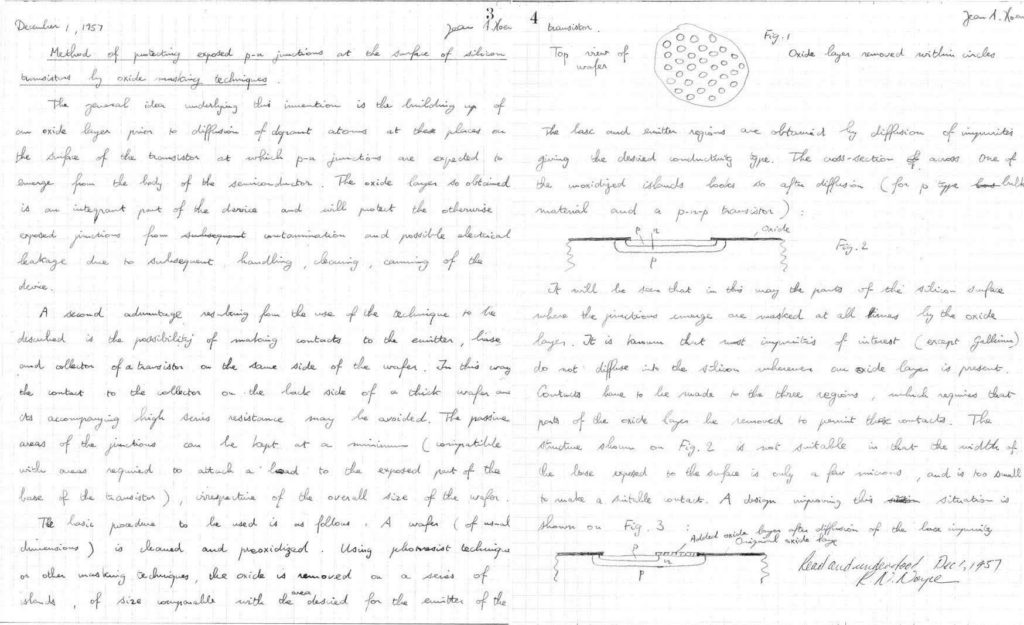 3
December 1, 1957
Jean A. Hoer
Method of protecting exposed p-n junctions at the surface of silicon
transistors by oxide masking techniques.
The general idea underlying this invention is the building up of
an oxide layer prior to diffusion of dopant atoms at these places on
the surface of the transistor at which p-n junctions are expected to
emerge from the body of the semiconductor. The oxide layer so obtained
is an integrant part of the device and will protect the otherwise
exposed junctions from subsequent contamination and possible electrical
leakage due to subsequent handling, cleaning, canning of the
device.
A second advantage resulting from the use of the technique to be
described is the possibility of making contacts to the emitter, base
and collector of a transistor on the same side of the wafer. In this way
the contact to the collector on the back side of a thick wafer and
its accompanying high series resistance may be avoided. The passive
areas of the junctions can be kept at a minimum (compatible
with areas required to attach a lead to the exposed part of the
base of the transistor), irrespective of the overall size of the wafer.
The basic procedure to be used is as follows. A wafer (of usual
dimensions) is cleaned and preoxidized. Using photoresist technique
or other masking techniques, the oxide is removed on a series of
islands, of size comparable with the area desired for the emitter of the
4
Jean A. Hoer
transistor.
Fig. 1
Top view of
wafer
Oxide layer removed within circles
The base and emitter regions are obtained by diffusion of impurities
giving the desired conductivity type. The cross-section of across one of
the unoxidized islands looks so after diffusion (for p type bulk
material and a p-n-p transistor):
oxide
p n
p
Fig. 2
It will be seen that in this way the parts of the silicon surface
where the junctions emerge are masked at all times by the oxide
layer. It is known that most impurities of interest (except Gallium)
do not diffuse into the silicon wherever an oxide layer is present.
Contacts have to be made to the three regions, which requires that
parts of the oxide layer be removed to permit these contacts. The
structure shown on Fig. 2 is not suitable in that the width of
the base exposed to the surface is only a few microns, and is too small
to make a suitable contact. A design improving this situation is
shown on Fig. 3 :
Added oxide layer after diffusion of the base impurity
Original oxide layer
p
n
p
Read and understood Dec 1, 1957
R. N. Noyce